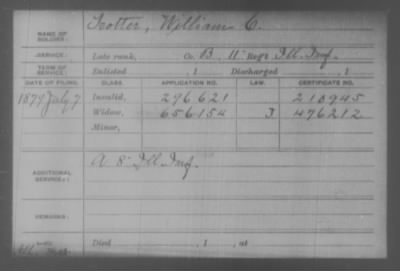 NAME OF SOLDIER: Trotter, William C.
SERVICE: Late rank, Co. B, 11" Reg't Ill. Inf.
TERM OF SERVICE: Enlisted , 1 Discharged , 1
DATE OF FILING. CLASS. APPLICATION NO. LAW. CERTIFICATE NO.
1879 July 7 Invalid, 296621 218945
Widow, 656154 3 476212
Minor,
ADDITIONAL SERVICES: A 8" Ill. Inf.
REMARKS:
Died , 1 , at